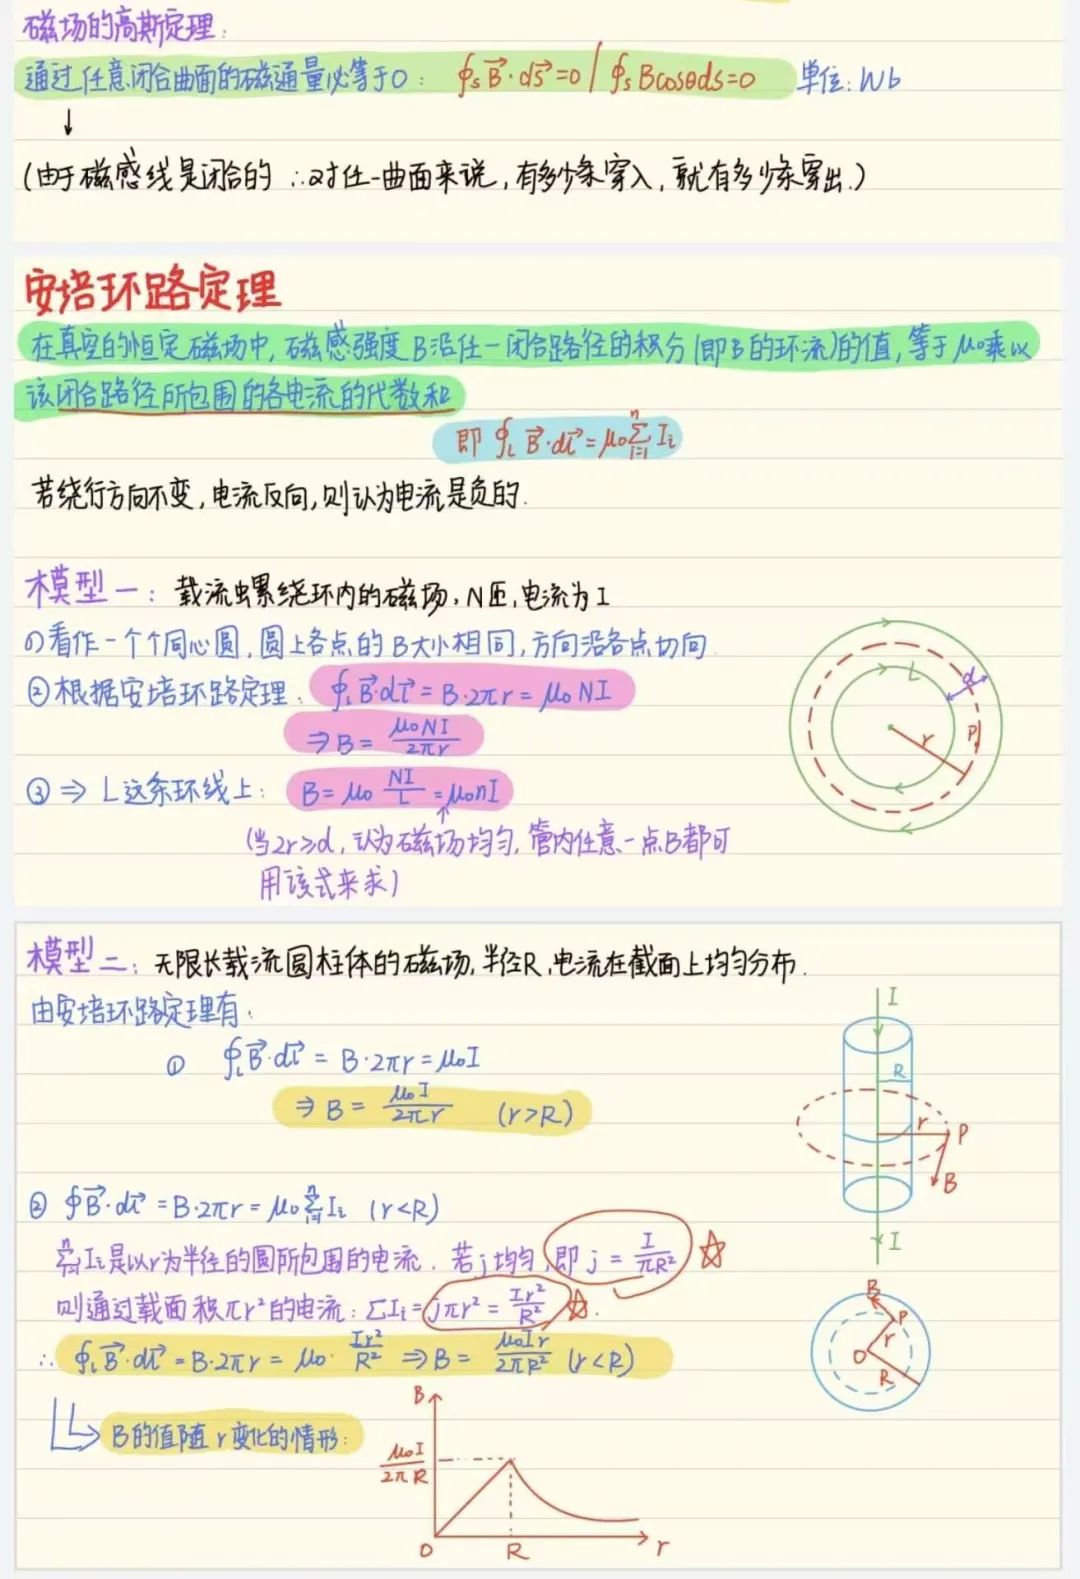 磁场的高斯定理：
通过任意闭合曲面的磁通量必等于0： ∮ₛB⃗·dS⃗=0 / ∮ₛBcosθds=0 单位：Wb
↓
（由于磁感线是闭合的 ∴对任一曲面来说，有多少条穿入，就有多少条穿出.）
安培环路定理
在真空的恒定磁场中，磁感强度B沿任一闭合路径的积分（即B的环流）的值，等于μ₀乘以
该闭合路径所包围的各电流的代数和
即 ∮ₗ B⃗·dl⃗=μ₀∑ⁿᵢ₌₁Iᵢ
若绕行方向不变，电流反向，则认为电流是负的.
模型一：载流螺绕环内的磁场，N匝，电流为I
①看作一个个同心圆，圆上各点的B大小相同，方向沿各点切向
②根据安培环路定理：∮ₗB⃗·dl⃗=B·2πr=μ₀NI
⇒B=μ₀NI/2πr
③⇒ L这条环线上： B=μ₀ NI/L =μ₀nI
（当2r≥d，认为磁场均匀，管内任意一点B都可
用该式来求）
L
d
r
P
模型二：无限长载流圆柱体的磁场，半径R，电流在截面上均匀分布.
由安培环路定理有：
① ∮ₗB⃗·dl⃗=B·2πr=μ₀I
⇒B=μ₀I/2πr （r>R）
② ∮B⃗·dl⃗=B·2πr=μ₀∑ⁿᵢ₌₁Iᵢ （r<R）
∑ⁿᵢ₌₁Iᵢ是以r为半径的圆所包围的电流. 若j均匀，即j=I/πR² ☆
则通过载面积πr²的电流：∑Iᵢ=jπr²=Ir²/R² ☆.
∴ ∮ₗB⃗·dl⃗=B·2πr=μ₀·Ir²/R² ⇒B=μ₀Ir/2πR² （r<R）
B的值随r变化的情形：
I
R
r
P
B
I
B
P
r
O
R
B
μ₀I/2πR
O
R
r